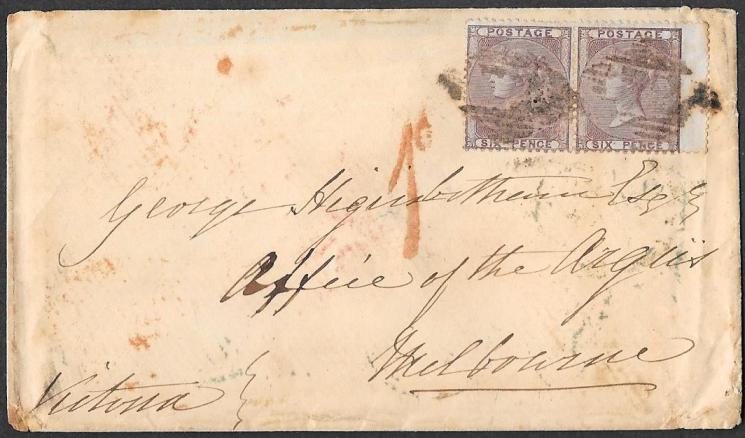 POSTAGE POSTAGE
SIX PENCE SIX PENCE
1
George Higinbotham Esq
Office of the Argus
Melbourne
Victoria